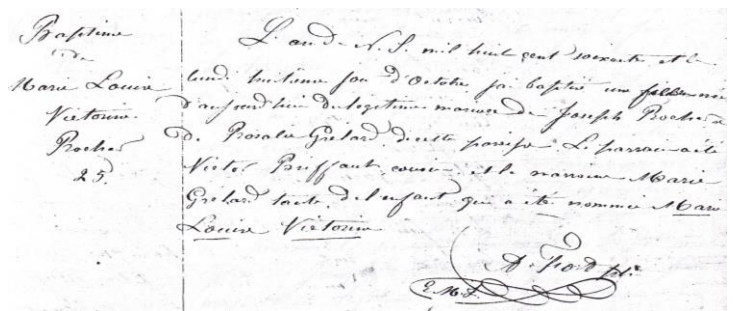 Baptême
de
Marie Louise
Victorine
Rocher
25.
L'an de N. S. mil huit cent soixante et le
lundi huitième jour d'Octobre j'ai baptisé une fille née
d'aujourd'hui du légitime mariage de Joseph Rocher &
de Rosalie Grelard de cette paroisse. Le parrain a été
Victor Briffaut, cousin et la marraine Marie
Grelard tante de l'enfant qui a été nommée Marie
Louise Victorine